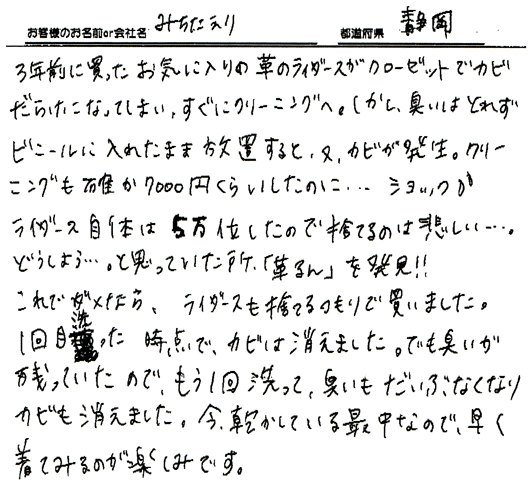 お客様のお名前or会社名 みちたえり 都道府県 静岡
3年前に買ったお気に入りの革のライダースがクローゼットでカビ
だらけになってしまい、すぐにクリーニングへ。しかし、臭いはとれず
ビニールに入れたまま放置すると、又、カビが発生。クリー
ニングも確か7000円くらいしたのに… ショックか
ライダース自体は5万位したので捨てるのは悲しい…。
どうしよう…。と思っていた所、「革るん」を発見!!
これでダメだたら、ライダースも捨てるつもりで買いました。
1回目洗った時点で、カビは消えました。でも臭いが
残っていたので、もう1回洗って、臭いもだいぶなくなり
カビも消えました。今、乾かしている最中なので、早く
着てみるのが楽しみです。